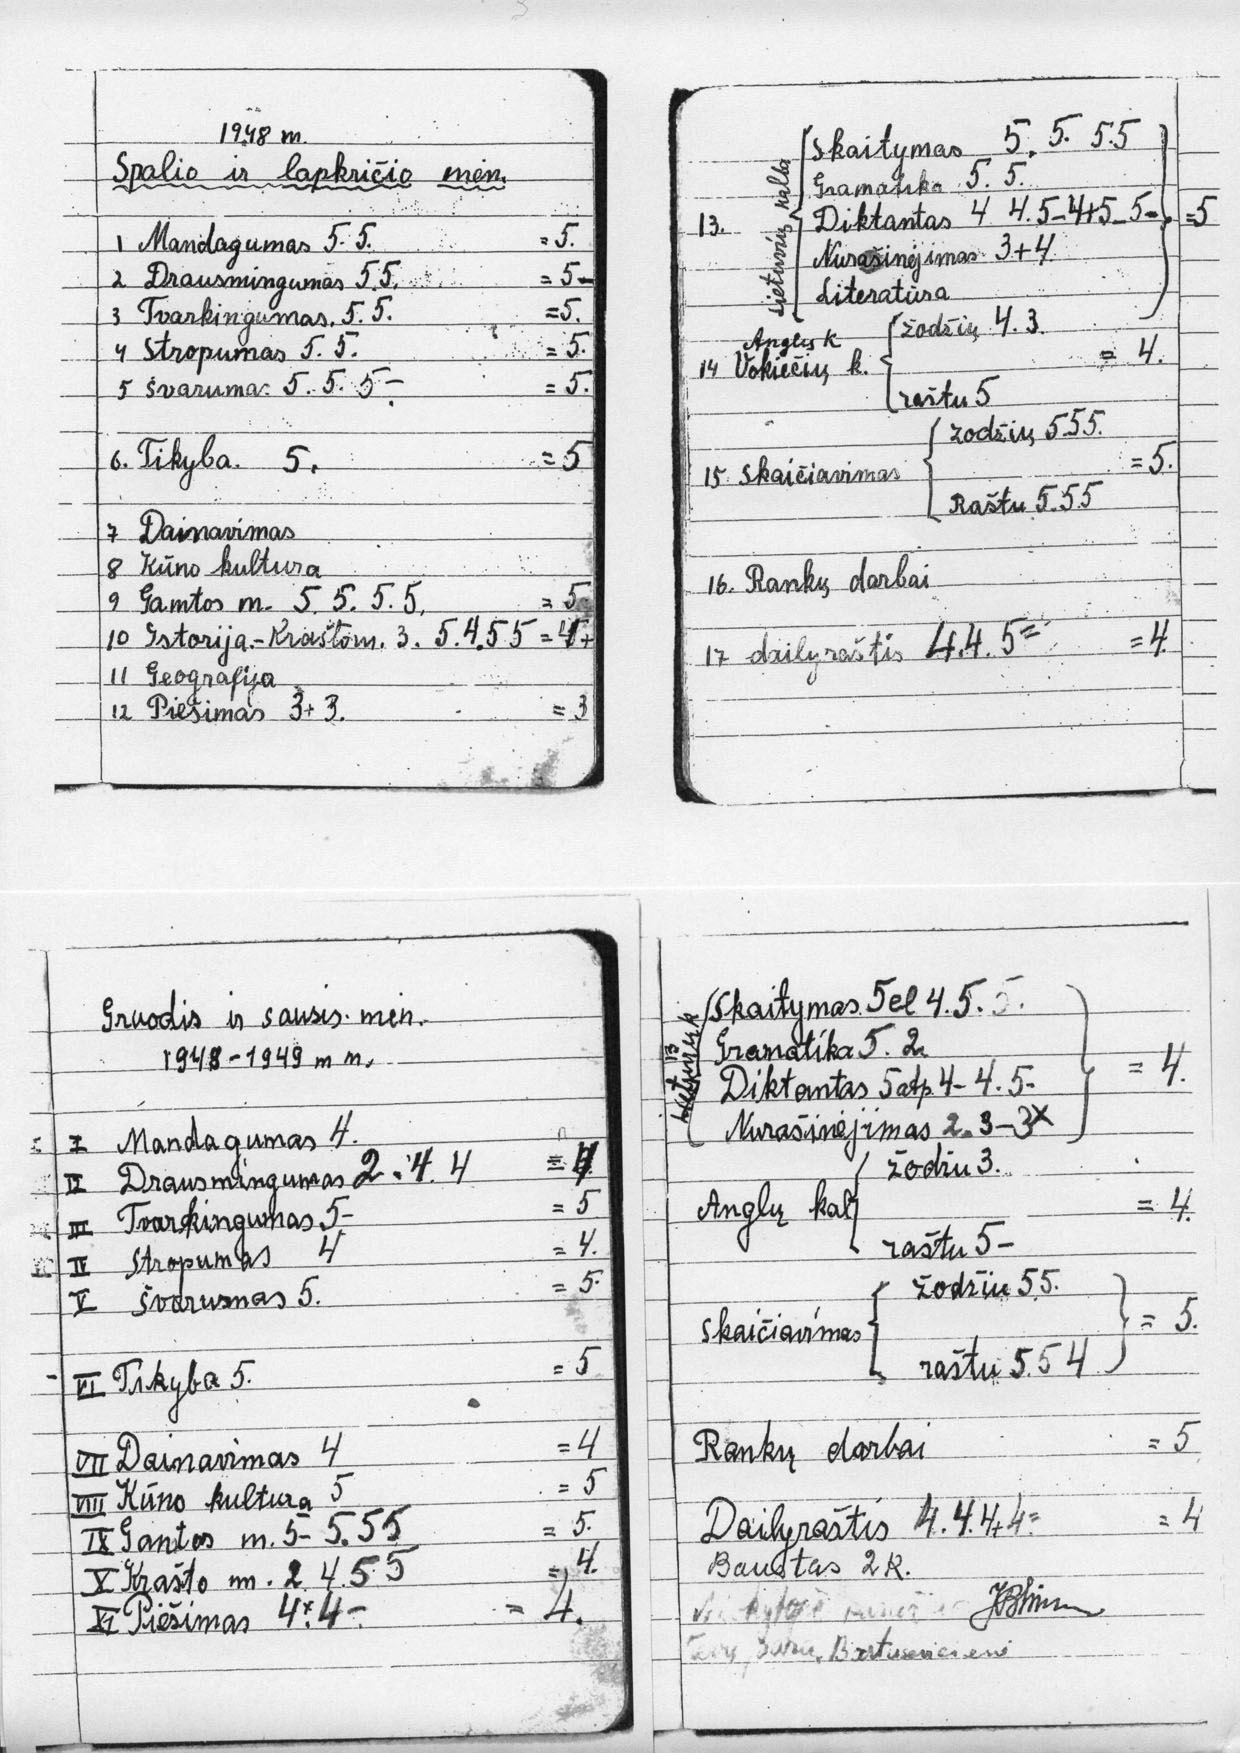 1948 m.
Spalio ir lapkričio mėn.
1 Mandagumas 5. 5. = 5.
2 Drausmingumas 5.5. = 5-
3 Tvarkingumas. 5. 5. =5.
4 Stropumas 5. 5. = 5.
5 Švarumas 5. 5. 5- = 5.
6. Tikyba. 5. = 5
7 Dainavimas
8 Kūno kultura
9 Gamtos m. 5. 5. 5. 5. = 5
10 Istorija.-Kraštom. 3. 5.4.5 5 = 4+
11 Geografija
12 Piešimas 3+ 3. = 3
13. Lietuvių kalba
Skaitymas 5. 5. 5.5
Gramatika 5. 5.
Diktantas 4 4. 5-4+5-5- =5
Nurašinėjimas 3+4.
Literatūra
Anglų k
14 Vokiečių k. žodžių 4. 3. = 4.
raštu 5
15. Skaičiavimas žodžių 5.5 5. = 5.
Raštu 5.5 5
16. Rankų darbai
17 dailyraštis 4.4. 5= = 4.
Gruodis ir sausis. mėn.
1948-1949 m m.
I Mandagumas 4.
II Drausmingumas 2. 4. 4 = 4
III Tvarkingumas 5- = 5
IV Stropumas 4 = 4.
V Švarumas 5. = 5.
VI Tikyba 5. = 5
VII Dainavimas 4 = 4
VIII Kūno kultura 5 = 5
IX Gamtos m. 5- 5.5 5 = 5.
X Krašto m. 2 4. 5 5 = 4.
XI Piešimas 4+. 4- = 4.
13
Lietuvių k
Skaitymas. 5el 4. 5. 5.
Gramatika 5. 2.
Diktantas 5atp. 4- 4. 5- = 4.
Nurašinėjimas 2. 3-3x
Anglų kal žodžiu 3. = 4.
raštu 5-
Skaičiavimas žodžiu 5 5. = 5.
raštu 5. 5 4
Rankų darbai = 5
Dailyraštis 4. 4. 4+ 4= = 4
Baustas 2 k.
Bartusevicienė